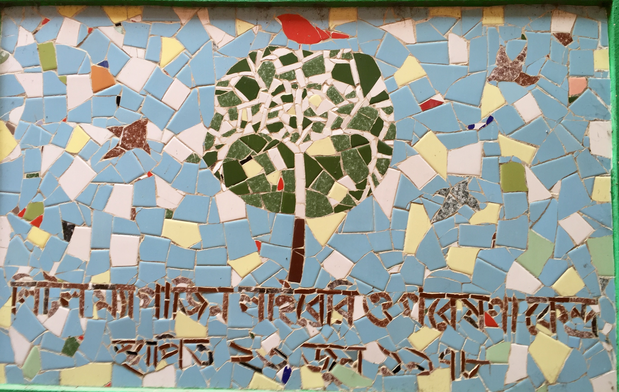 লিটল ম্যাগাজিন লাইব্রেরি ও গবেষণা কেন্দ্র
স্থাপিত ২৩ জুন ১৯৭৮